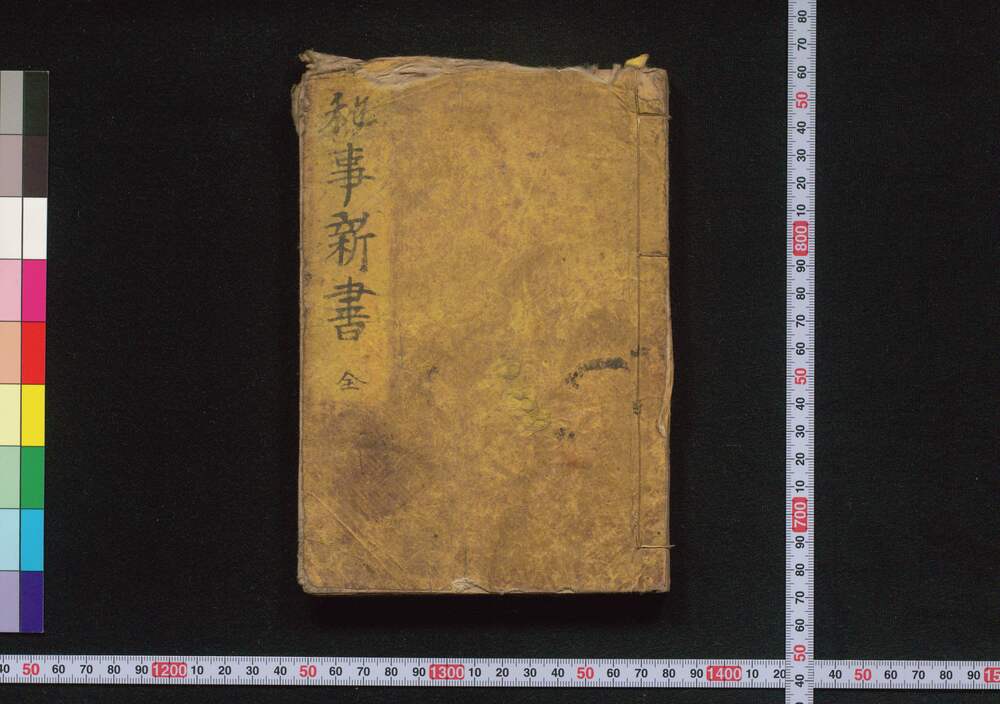 秘事新書 全
80 70 60 50 40 30 20 10 800 90 80 70 60 50 40 30 20 10 700 90 80 70 60 50 40
40 50 60 70 80 90 1200 10 20 30 40 50 60 70 80 90 1300 10 20 30 40 50 60 70 80 90 1400 10 20 40 50 60 70 80 90